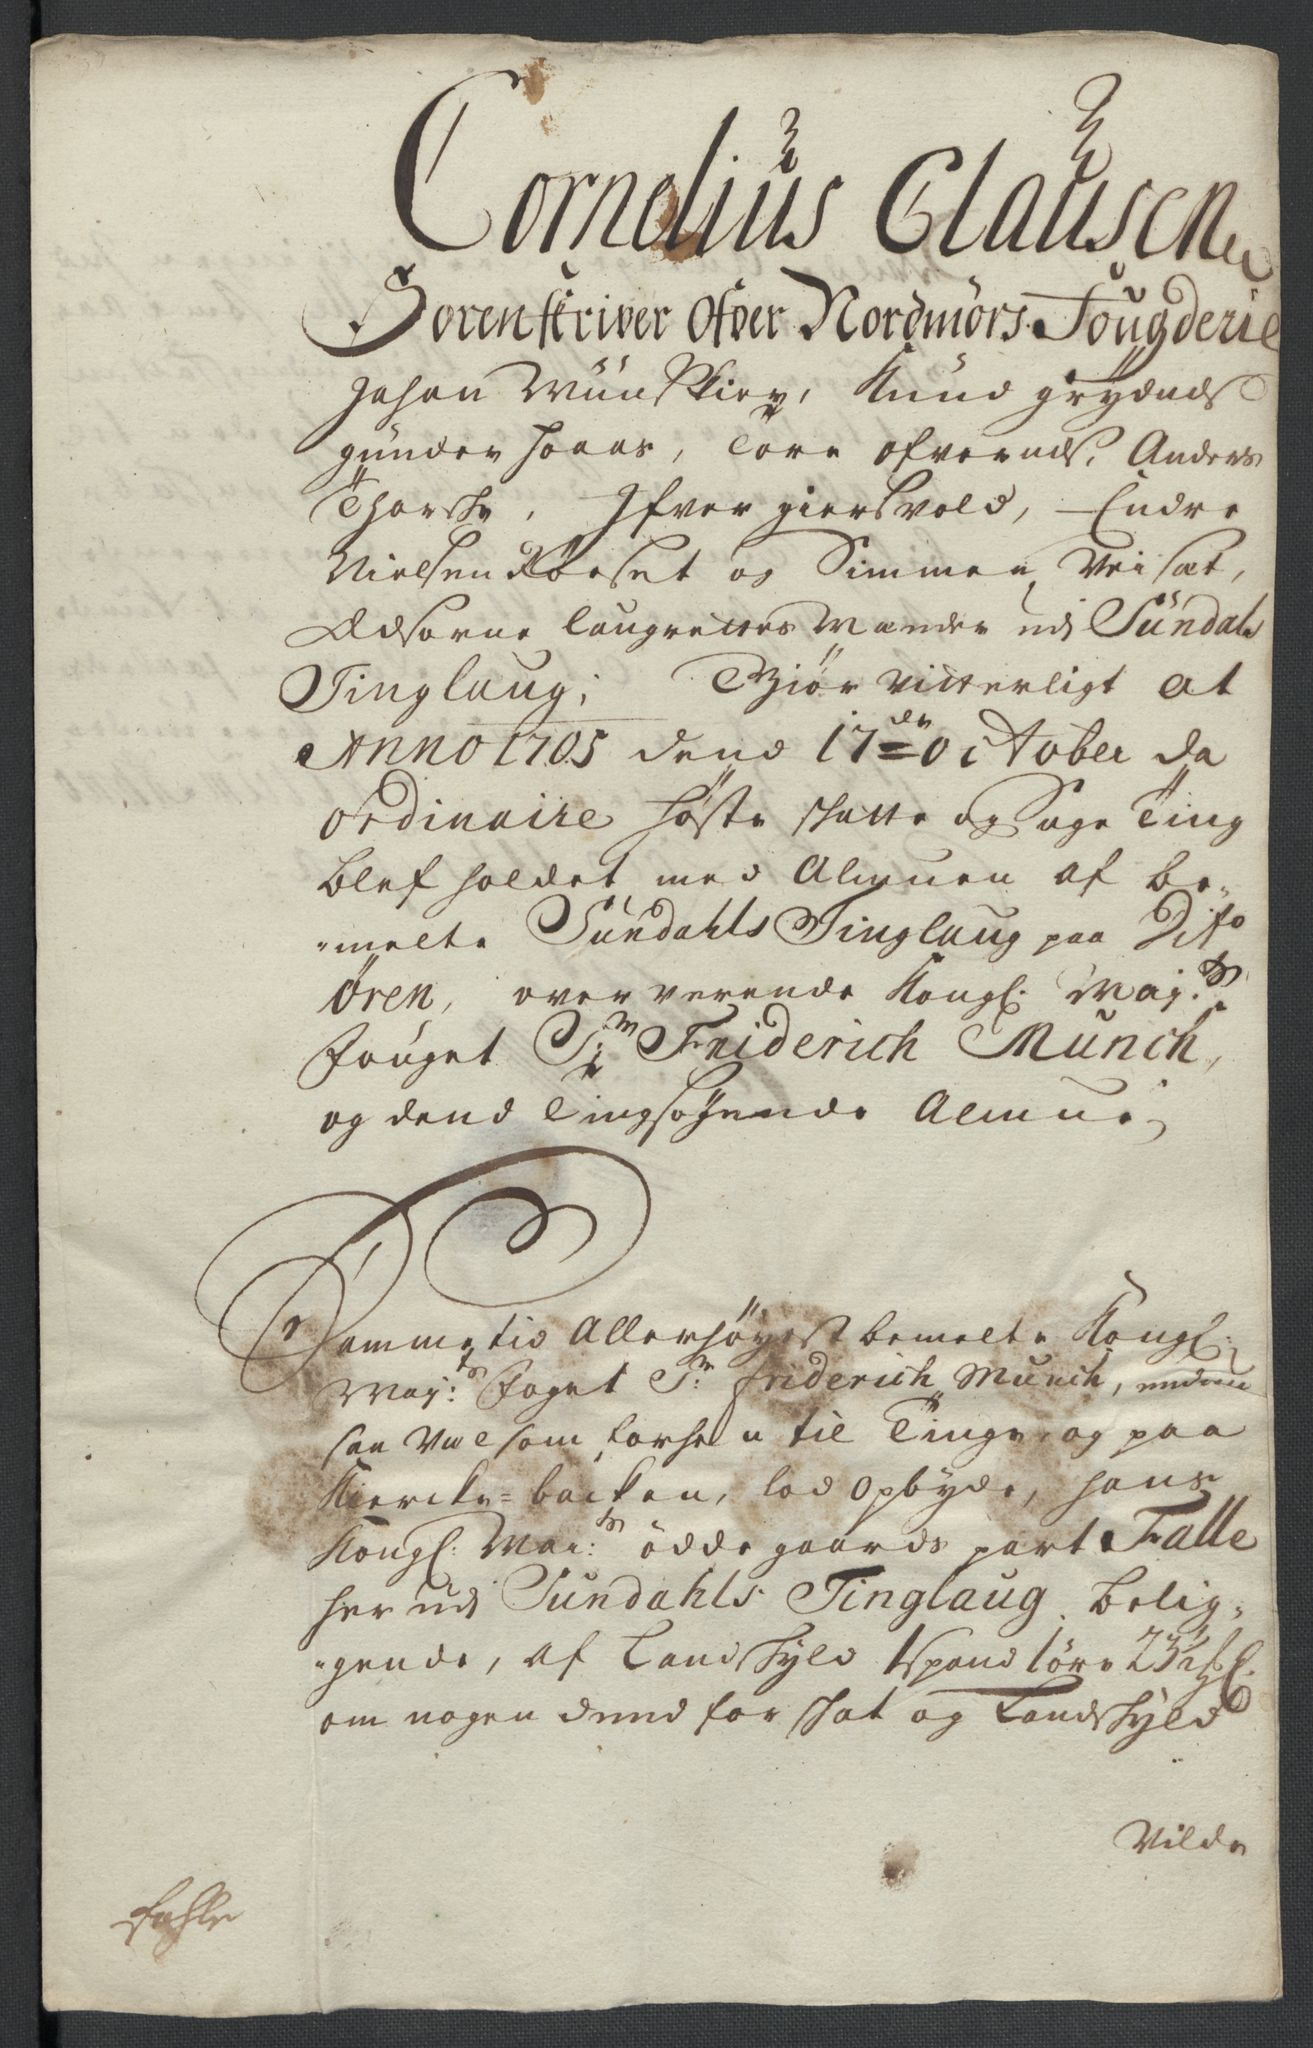 Cornelius Clausen
Sorenskriver ofver Nordmörs Fougderie
Johan Wünskier, Knud Grydnds
Gunder Hoaas, Tore Ofverends, Anders
Thorske, Ifver Giersvold, Endre
Nielsen Røeset og Simmen Veiset,
Edsorne Laugrettes Mænder udj Sündals
Tinglaug; Giör vitterligt at
Anno 1705 dend 17de October da
ordinaire höste skatte og Sage Ting
blef holdet med Almuen af be-
-melte Sundahls Tinglaug paa Dito
Ören, overværende Kongl. Maj.ts
Fouget Sr. Friderich Munch,
og dend Tingsøgende Almue;
Samme tid Allerhöyest bemelte Kongl.
Maj.ts Foget Sr. Friderich Munch, endnu
saa vel som forhen til Tinge og paa
Kiercke-backen, lod opbyde, hans
Kongl. Mai.ts ödde gaards part Falle
her udj Sundahls Tinglaug belig-
-gende, af Landskyld 1 spand 1 öre 23½ ℳl.
om nogen dend for skat og Landskyld
Vilde
Fahle